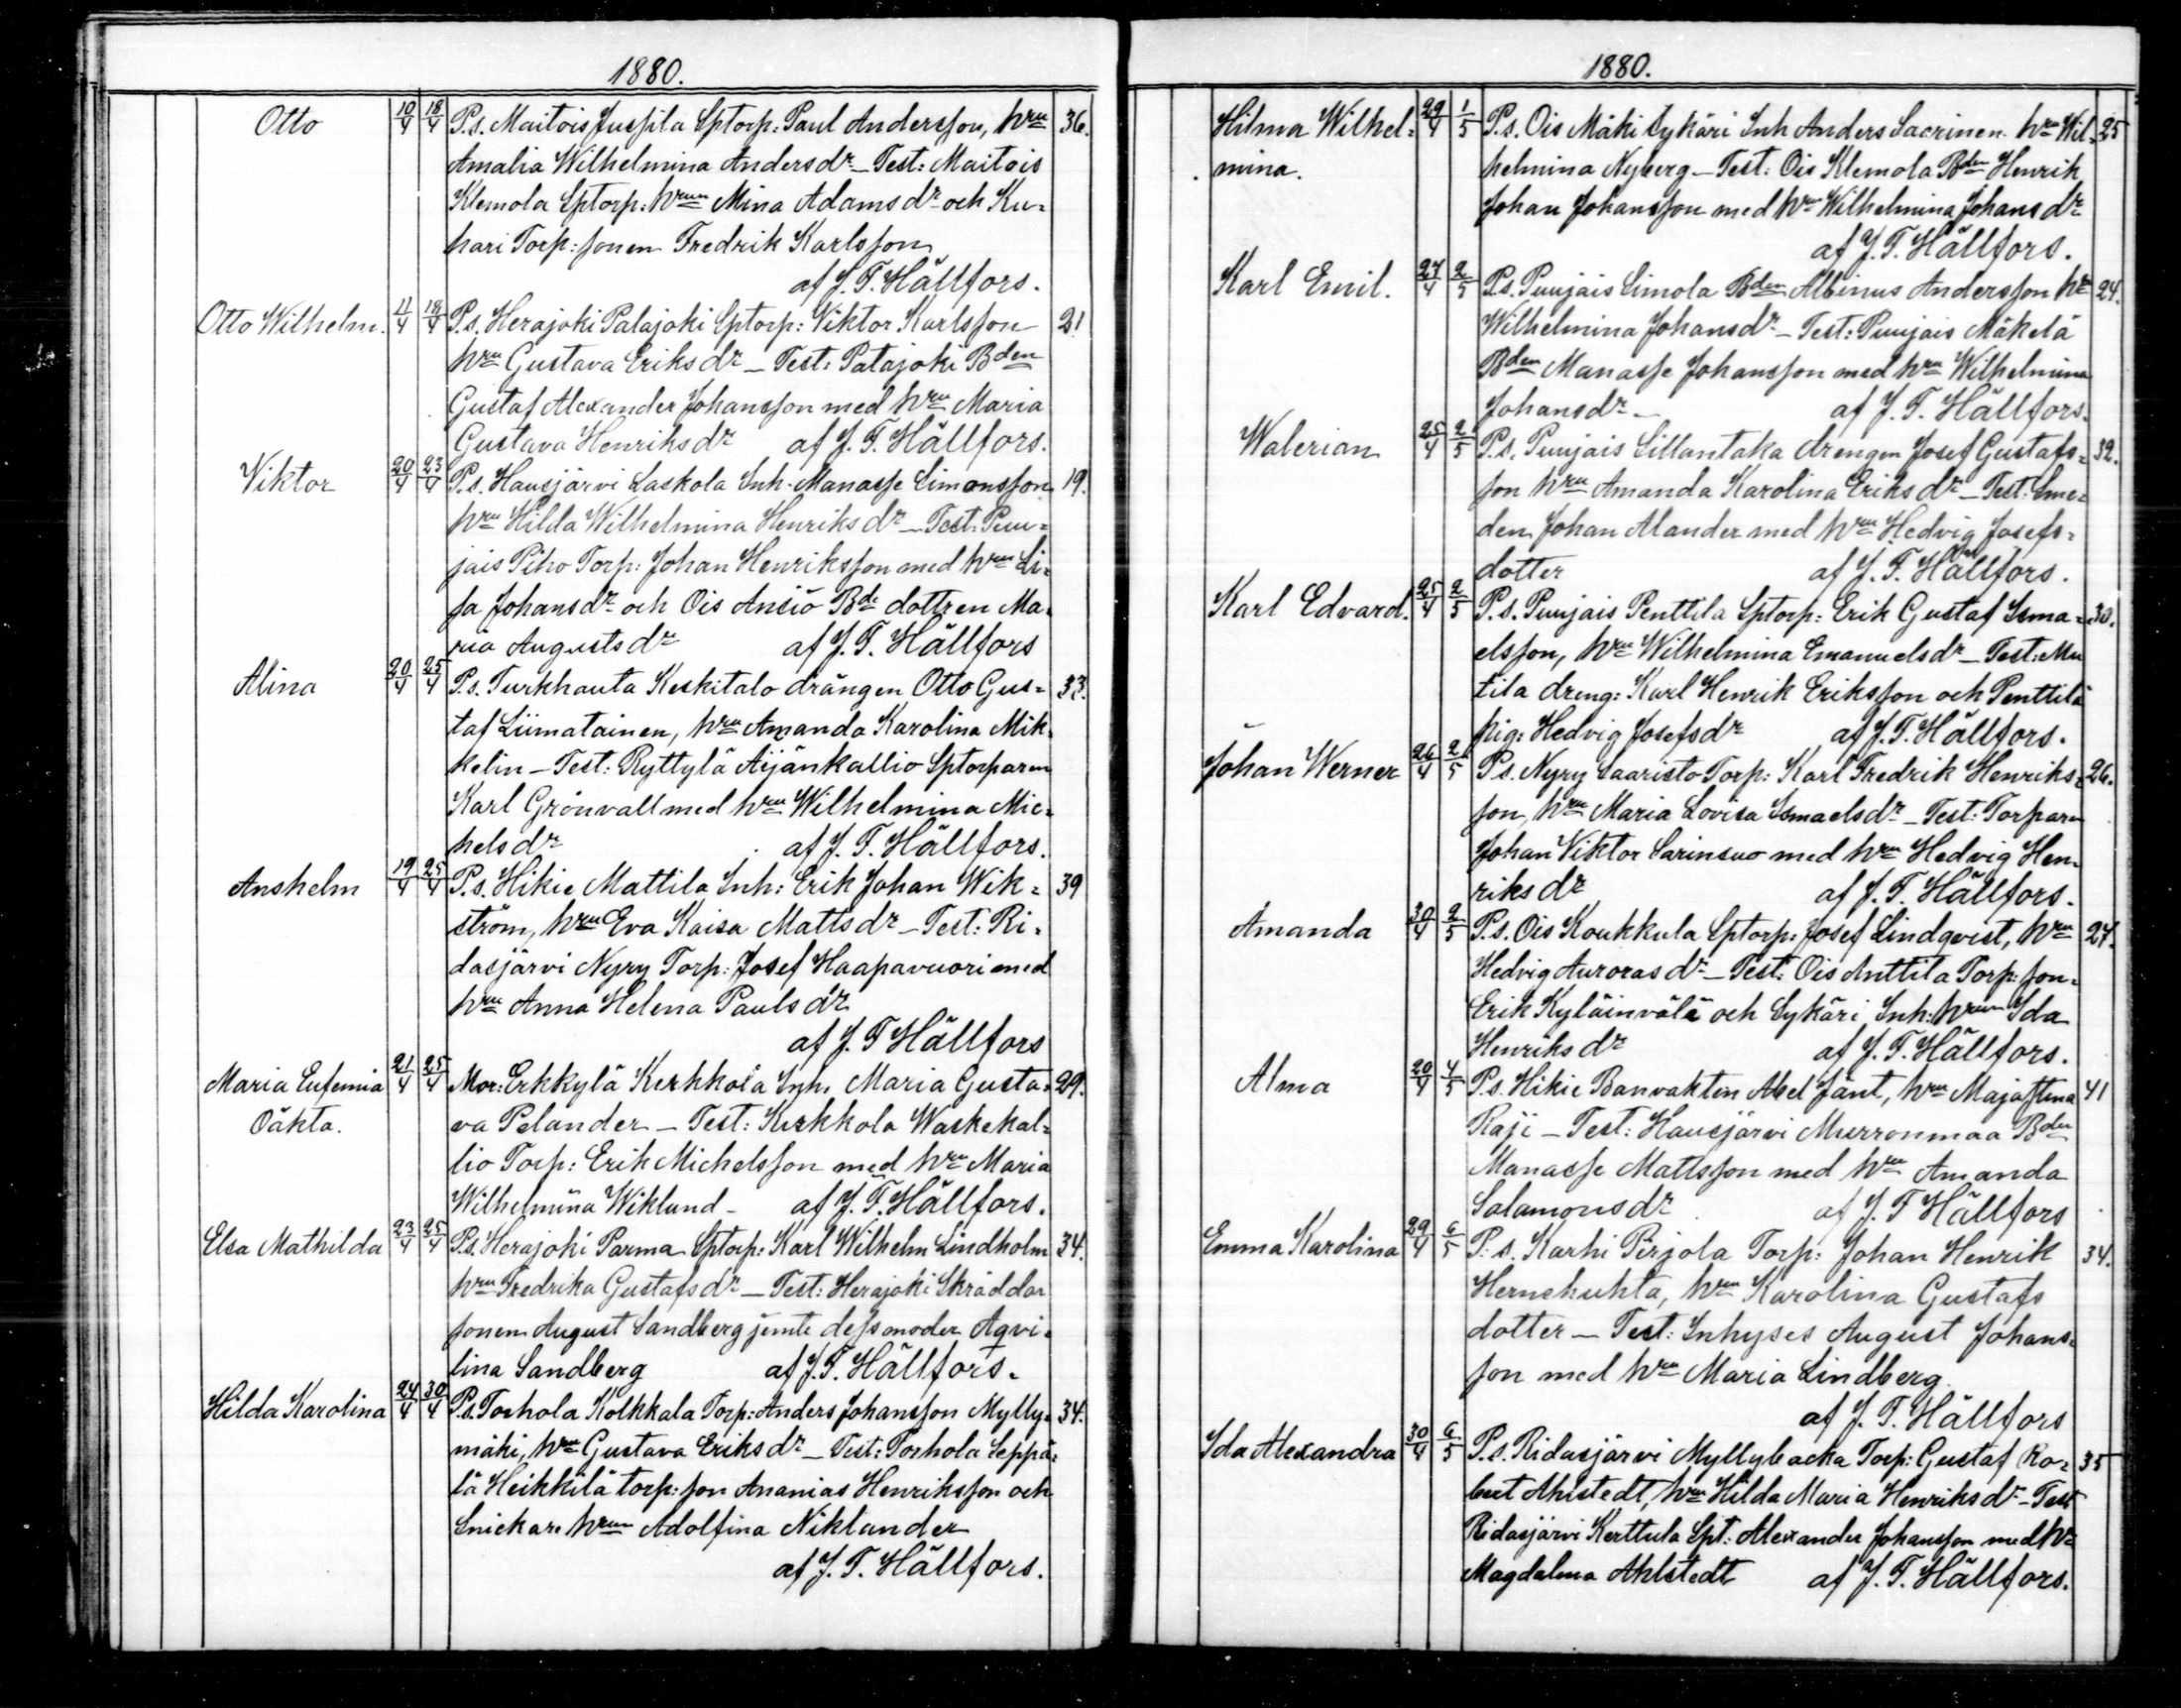 1880.
Otto 10/4 18/4 P.s. Maitois Jussila Sptorp: Paul Andersson, hru 36.
Amalia Wilhelmina Andersdr – Test: Maitois
Klemola Sptorp: hrun Mina Adamsdr och Ku-
hari Torp: sonen Fredrik Karlsson
af J. F. Hällfors.
Otto Wilhelm. 11/4 18/4 P.s. Herajoki Palajoki Sptorp: Viktor Karlsson 21
hru Gustava Eriksdr – Test: Patajoki Bden
Gustaf Alexander Johansson med hru Maria
Gustava Henriksdr af J. F. Hällfors.
Viktor 20/4 23/4 P.s. Hausjärvi Laskola Inh. Manasse Simonsson 19.
hru Hilda Wilhelmina Henriksdr – Test: Puu-
jais Piho Torp: Johan Henriksson med hru Li-
sa Johansdr och Ois Ansio Bde dottren Ma-
ria Augustsdr af J. F. Hällfors
Alina 20/4 25/4 P.s. Turkhauta Keskitalo drängen Otto Gus- 33.
taf Liimatainen, hru Amanda Karolina Mik-
kelin – Test: Ryttylä Äijänkallio Sptorparen
Karl Grönvall med hru Wilhelmina Mic-
helsdr af J. F. Hällfors.
Anshelm 19/4 25/4 P.s. Hikie Mattila Inh: Erik Johan Wik- 39
ström, hru Eva Kaisa Mattsdr – Test: Ri-
dasjärvi Nyry Torp: Josef Haapavuori med
hru Anna Helena Paulsdr
af J. F Hällfors
Maria Eufemia 21/4 25/4 Mor: Erkkylä Kerkkola Inh. Maria Gusta- 29.
Oäkta. va Pelander – Test: Kerkkola Waskekal-
lio Torp: Erik Michelsson med hru Maria
Wilhelmina Wiklund – af J. F. Hällfors.
Elsa Mathilda 23/4 25/4 P.s. Herajoki Parma Sptorp: Karl Wilhelm Lindholm 34.
hru Fredrika Gustafsdr – Test: Herajoki Skräddar
sonen August Sandberg jemte dess moder Aqvi-
lina Sandberg af J. F. Hällfors.
Hilda Karolina 24/4 30/4 P.s. Torhola Kolkkala Torp: Anders Johansson Mylly- 34.
mäki, hru Gustava Eriksdr – Test: Torhola Seppä-
lä Heikkilä torp: son Ananias Henriksson och
Snickare hrun Adolfina Niklander
af J. F. Hällfors.
1880.
Hilma Wilhel- 29/4 1/5 P.s. Ois Mäki Sykäri Inh Anders Saarinen hru Wil- 25
mina. helmina Nyberg – Test: Ois Klemola Bden Henrik
Johan Johansson med hru Wilhelmina Johansdr
af J. F. Hällfors.
Karl Emil. 27/4 2/5 P.s. Puujais Simola Bden Albinus Andersson hr 24.
Wilhelmina Johansdr – Test: Puujais Mäkelä
Bden Manasse Johansson med hru Wilhelmina
Johansdr – af J. F. Hällfors.
Walerian 25/4 2/5 P.s. Puujais Sillantaka drengen Josef Gustafs- 32.
son hru Amanda Karolina Eriksdr – Test: Sme-
den Johan Alander med hru Hedvig Josefs-
dotter af J. F. Hällfors.
Karl Edvard. 25/4 2/5 P.s. Puujais Penttilä Sptorp: Erik Gustaf Isma- 30.
elsson, hru Wilhelmina Emanuelsdr – Test: Mu
tila dreng: Karl Henrik Eriksson och Penttilä
pig: Hedvig Josefsdr af J. F. Hällfors.
Johan Werner 26/4 2/5 P.s. Nyry Saaristo Torp: Karl Fredrik Henriks- 26.
son, hru Maria Lovisa Ismaelsdr – Test: Torparen
Johan Viktor Sarinsuo med hru Hedvig Hen-
riksdr af J. F. Hällfors.
Amanda 30/4 2/5 P.s. Ois Koukkula Sptorp: Josef Lindqvist, hru 27.
Hedvig Aurorasdr – Test: Ois Anttila Torp: son-
Erik Kyläinvälä och Sykäri Inh: hrun Ida
Henriksdr af J. F. Hällfors.
Alma 20/4 4/5 P.s. Hikie Banvakten Abel Jänt, hru Maja Stina 41
Raji – Test: Hausjärvi Murronmaa Bden
Manasse Mattsson med hru Amanda
Salamonsdr af J. F Hällfors
Emma Karolina 29/4 6/5 P. s. Karhi Pirjola Torp: Johan Henrik 34.
Hernehuhta, hru Karolina Gustafs
dotter – Test: Inhyses August Johans-
son med hru Maria Lindberg.
af J. F. Hällfors
Ida Alexandra 30/4 6/5 P.s. Ridasjärvi Myllybacka Torp: Gustaf Ro- 35
bert Ahlstedt, hru Hilda Maria Henriksdr – Test
Ridasjärvi Kerttula Spt: Alexander Johansson med hr
Magdalena Ahlstedt af J. F. Hällfors.